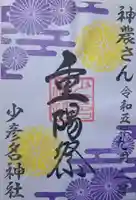 神農さん
令和五年九月九日
重陽祭
少彦名神社